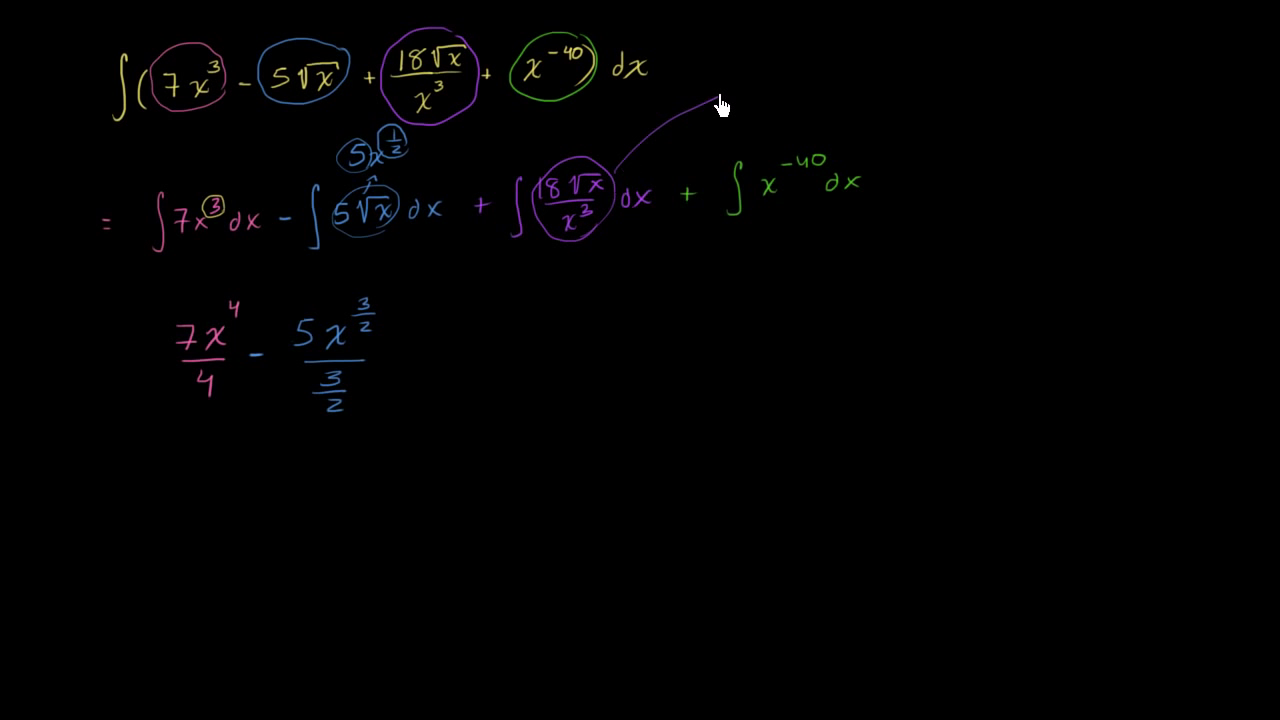 ∫(7x³ - 5√x + 18√x/x³ + x⁻⁴⁰) dx
5x^(1/2)
= ∫7x³ dx - ∫5√x dx + ∫18√x/x³ dx + ∫x⁻⁴⁰ dx
7x⁴/4 - 5x^(3/2)/(3/2)